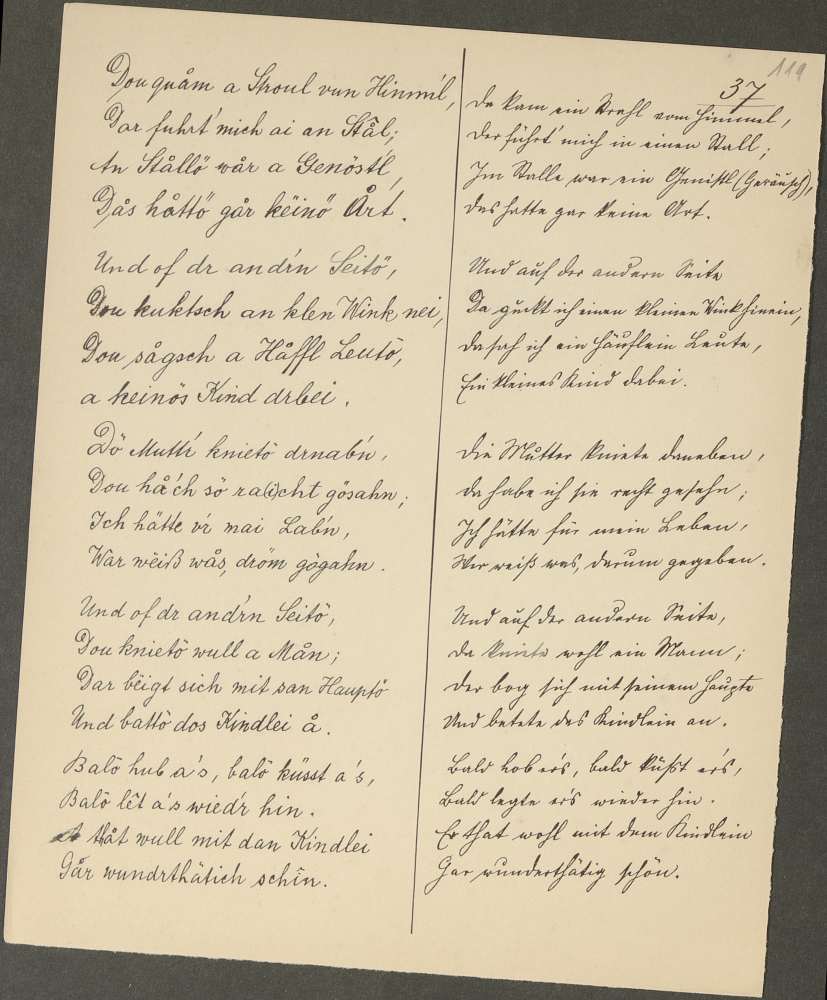 119
37
Dou quåm a Stroul vun Himm'l,
Dar fuhrt' mich ai an Stål;
An Stållö wår a Genöst'l,
Dås håttö går këinö Årt.
Und of dr and'rn Seitö,
Dou kuktsch an klen Wink nei,
Dou sågsch a Håffl Leutö,
a keinös Kind drbei.
Dö Mutt'r knietö drnab'n,
Dou hå'ch sö ra(i)cht gösahn;
Ich hätte v'r mai Lab'n,
War wëiß wås, dröm gögahn.
Und of dr and'rn Seitö,
Dou knietö wull a Mån;
Dar bëigt sich mit san Hauptö
Und battö dos Kindlei å.
Balö hub a's, balö küsst a's,
Balö lët a's wied'r hin.
A thåt wull mit dan Kindlei
Går wundrthätich schîn.
Da kam ein Strahl vom Himmel,
Der führt' mich in einen Stall;
Im Stalle war ein Genistl (Geräusch),
das hatte gar keine Art.
Und auf der andern Seite
Da guckt ich einen kleinen Wink hinein,
da sah ich ein Häuflein Leute,
Ein kleines Kind dabei.
Die Mutter kniete daneben,
da habe ich sie recht gesehn;
Ich hätte für mein Leben,
Wer weiß was, darum gegeben.
Und auf der andern Seite,
da kniete wohl ein Mann;
der bog sich mit seinem Haupte
Und betete das Kindlein an.
Bald hob er's, bald küßt er's,
Bald legte er's wieder hin.
Er that wohl mit dem Kindlein
Gar wunderthätig schön.